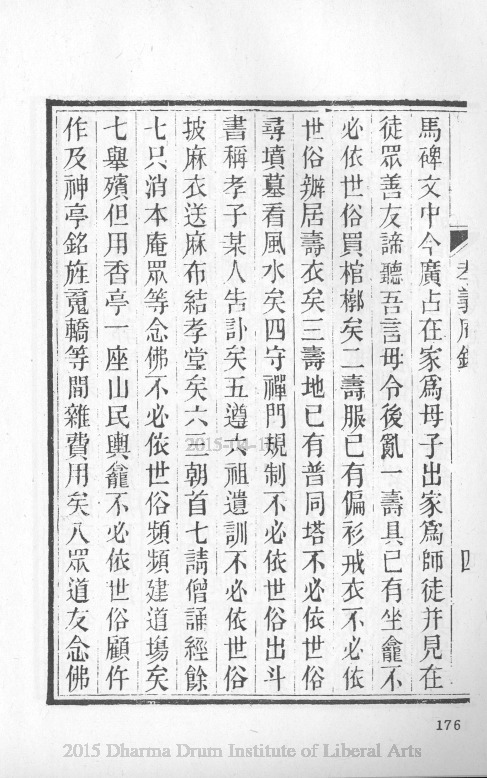 馬碑文中今廣占在家爲母子出家爲師徒并見在
徒眾善友諦聽吾言毋令後亂一壽具已有坐龕不
必依世俗買棺槨矣二壽服已有偏衫戒衣不必依
世俗辦居壽衣矣三壽地已有普同塔不必依世俗
尋墳墓看風水矣四守禪門規制不必依世俗出斗
書稱孝子某人告訃矣五遵六祖遺訓不必依世俗
披麻衣送麻布結孝堂矣六三朝首七請僧誦經餘
七只消本庵眾等念佛不必依世俗頻頻建道場矣
七舉殯但用香亭一座山民輿龕不必依世俗顧仵
作及神亭銘旌竟轎等間雜費用矣八眾道友念佛
孝義庵錄
四
176
2015 Dharma Drum Institute of Liberal Arts